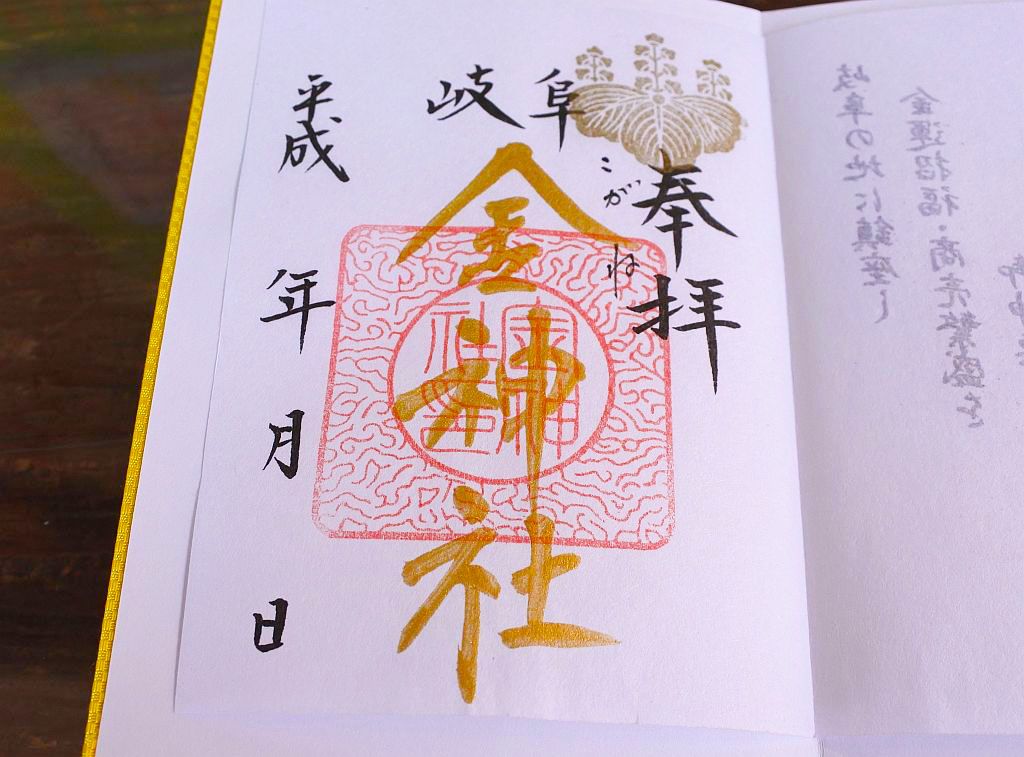 奉拝
岐阜
こがね
金神社
金神社印
平成 年 月 日
岐阜の地に鎮座し
金運招福・商売繁盛を